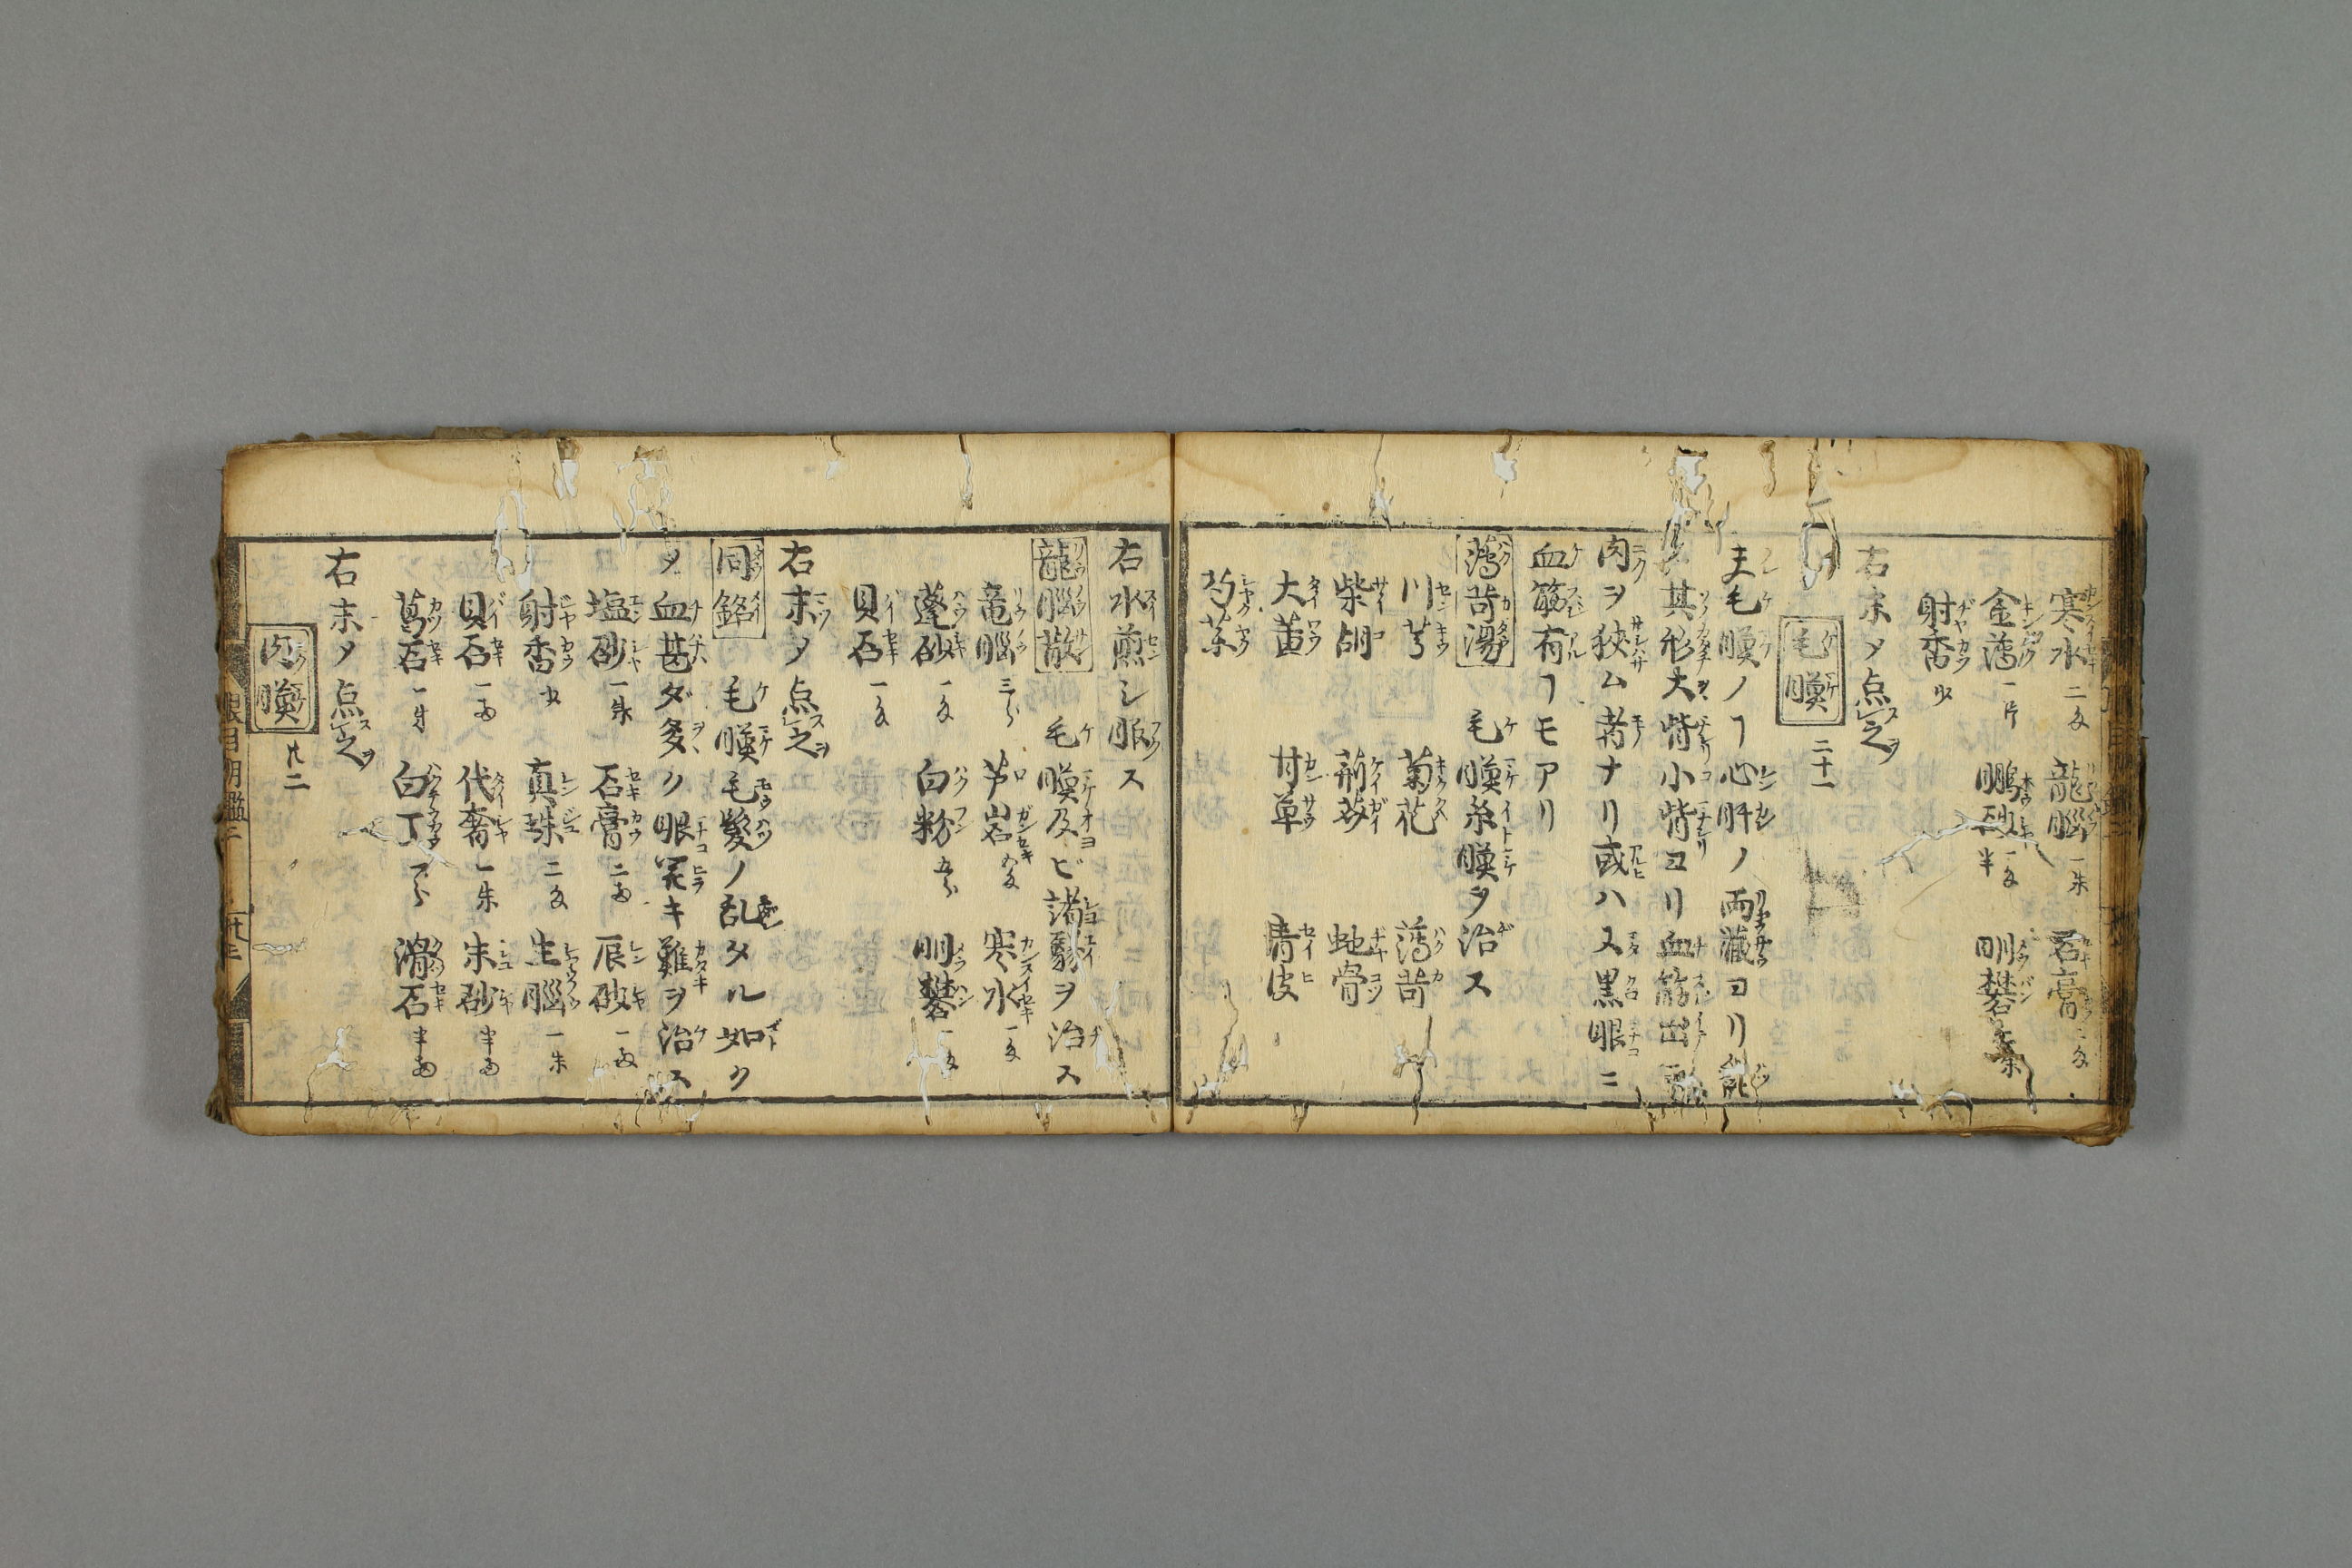 寒水二匁　龍脳一朱　石膏二匁
金薄一片　鵬砂一匁半　明礬一朱
射香少
右末〆点之
毛瞙　二十一
夫毛瞙ノヿ心肝ノ両藏ヨリ
其形大眥小眥ヨリ血筋出
肉ヲ狹ム者ナリ或ハ又黒眼ニ
血筋有ヿモアリ
薄苛湯　毛瞙糸瞙ヲ治ス
川芎　菊花　薄苛
柴胡　荊芥　虵骨
大黄　甘草　青皮
芍薬
右水煎シ服ス
龍脳散　毛瞙及ビ諸翳ヲ治ス
竜脳三分　芦岩五匁　寒水一匁
蓬砂一匁　白粉五分　明礬一匁
貝石一匁
右末〆点之
同銘　毛瞙毛髪ノ乱タル如ク
〆血甚ダ多ク眼開キ難ヲ治ス
塩砂一朱　石膏二両　辰砂一両
射香少　真珠二匁　生脳一朱
貝石一両　代赭一朱　朱砂半両
葛石　白丁一分　滑石半両
右末〆点之
肉瞙　廿二